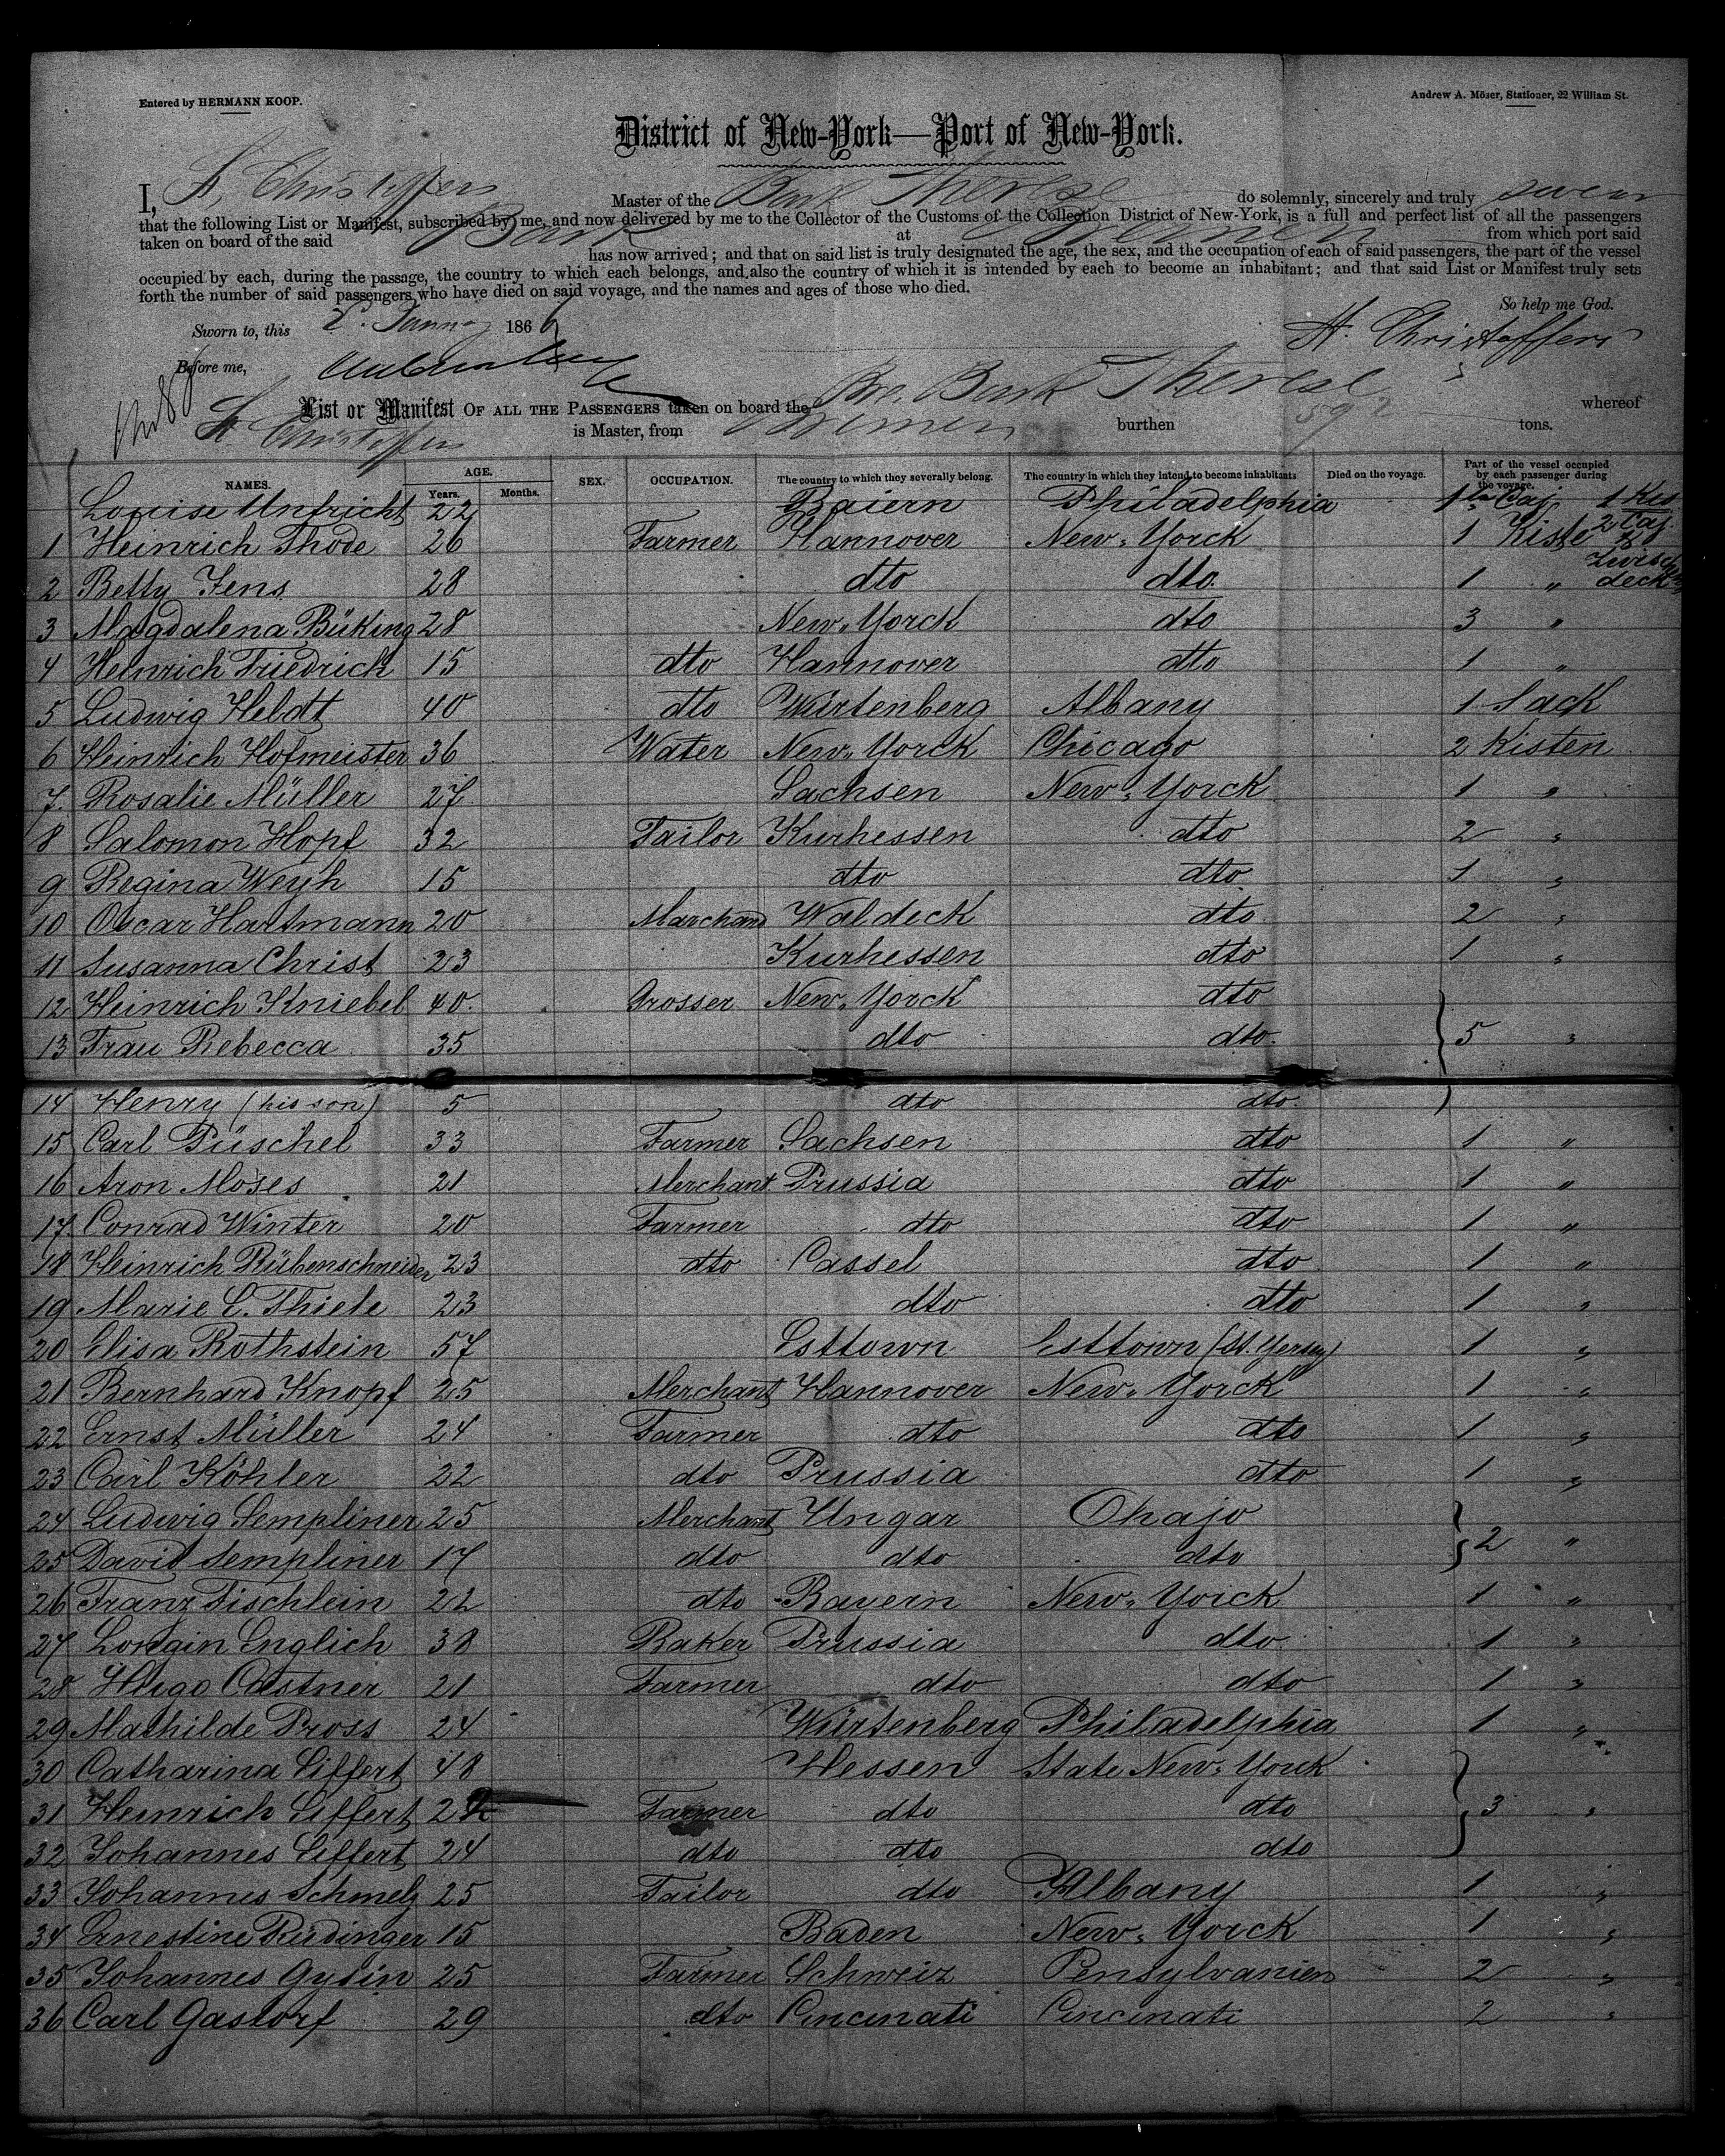 Entered by HERMANN KOOP.
Andrew A. Möser, Stationer, 22 William St.
District of New-York—Port of New-York.
I, H. Christoffers Master of the Bark Therese do solemnly, sincerely and truly swear
that the following List or Manifest, subscribed by me, and now delivered by me to the Collector of the Customs of the Collection District of New-York, is a full and perfect list of all the passengers
taken on board of the said Bark at Bremen from which port said
has now arrived; and that on said list is truly designated the age, the sex, and the occupation of each of said passengers, the part of the vessel
occupied by each, during the passage, the country to which each belongs, and also the country of which it is intended by each to become an inhabitant; and that said List or Manifest truly sets
forth the number of said passengers who have died on said voyage, and the names and ages of those who died.
So help me God.
Sworn to, this 2 January 186
H. Christoffers
Before me,
List or Manifest OF ALL THE PASSENGERS taken on board the Bre. Bark Therese whereof
H Christoffers is Master, from Bremen burthen 592 tons.
NAMES. AGE. Years. Months. SEX. OCCUPATION. The country to which they severally belong. The country in which they intend to become inhabitants Died on the voyage. Part of the vessel occupied by each passenger during the voyage.
Louise Unfricht 22 Baiern Philadelphia 1te Caj 1 Kis
1 Heinrich Thode 26 Farmer Hannover New-Yorck 1 Kiste 2 Caj.
2 Betty Jens 28 dto dto. 1 " Zwisch deck
3 Magdalena Büking 28 New-Yorck dto 3 "
4 Heinrich Friedrich 15 dto Hannover dto 1 "
5 Ludwig Heldt 40 dto Würtenberg Albany 1 Sack
6 Heinrich Hofmeister 36 Water New-Yorck Chicago 2 Kisten
7. Rosalie Müller 27 Sachsen New-Yorck 1 "
8 Salomon Hopf 32 Tailor Kurhessen dto 2 "
9 Regina Weyh 15 dto dto 1 "
10 Oscar Hartmann 20 Marchand Waldeck dto 2 "
11 Susanna Christ 23 Kurhessen dto 1 "
12 Heinrich Kniebel 40. Grosser New-Yorck dto
13 Frau Rebecca 35 dto dto. 5 "
14 Henry (his son) 5 dto dto.
15 Carl Püschel 33 Farmer Sachsen dto 1 "
16 Aron Moses 21 Merchant Prussia dto 1 "
17. Conrad Winter 20 Farmer dto dto 1 "
18 Heinrich Rübenschneider 23 dto Cassel dto 1 "
19 Marie C. Thiele 23 dto dto 1 "
20 Elisa Rothstein 57 Esttown Esttown (St. Yersey) 1 "
21 Bernhard Knopf 25 Merchant Hannover New-Yorck 1 "
22 Ernst Müller 24 Farmer dto dto 1 "
23 Carl Köhler 22 dto Prussia dto 1 "
24 Ludwig Sempliner 25 Merchant Ungar Ohajo
25 David Sempliner 17 dto dto dto 2 "
26 Franz Fischlein 22 dto Bavern New-Yorck 1 "
27 Longin Englich 38 Baker Prussia dto 1 "
28 Hugo Castner 21 Farmer dto dto 1 "
29 Mathilde Pross 24 Würtenberg Philadelphia 1 "
30 Catharina Siffert 48 Hessen State New-Yorck
31 Heinrich Siffert 2 Farmer dto dto 3 "
32 Johannes Siffert 24 dto dto dto
33 Johannes Schmelz 25 Tailor dto Albany 1 "
34 Ernestine Riedinger 15 Baden New-Yorck 1 "
35 Johannes Gysin 25 Farmer Schweiz Pensylvanien 2 "
36 Carl Gastorf 29 dto Cincinati Cincinati 2 "